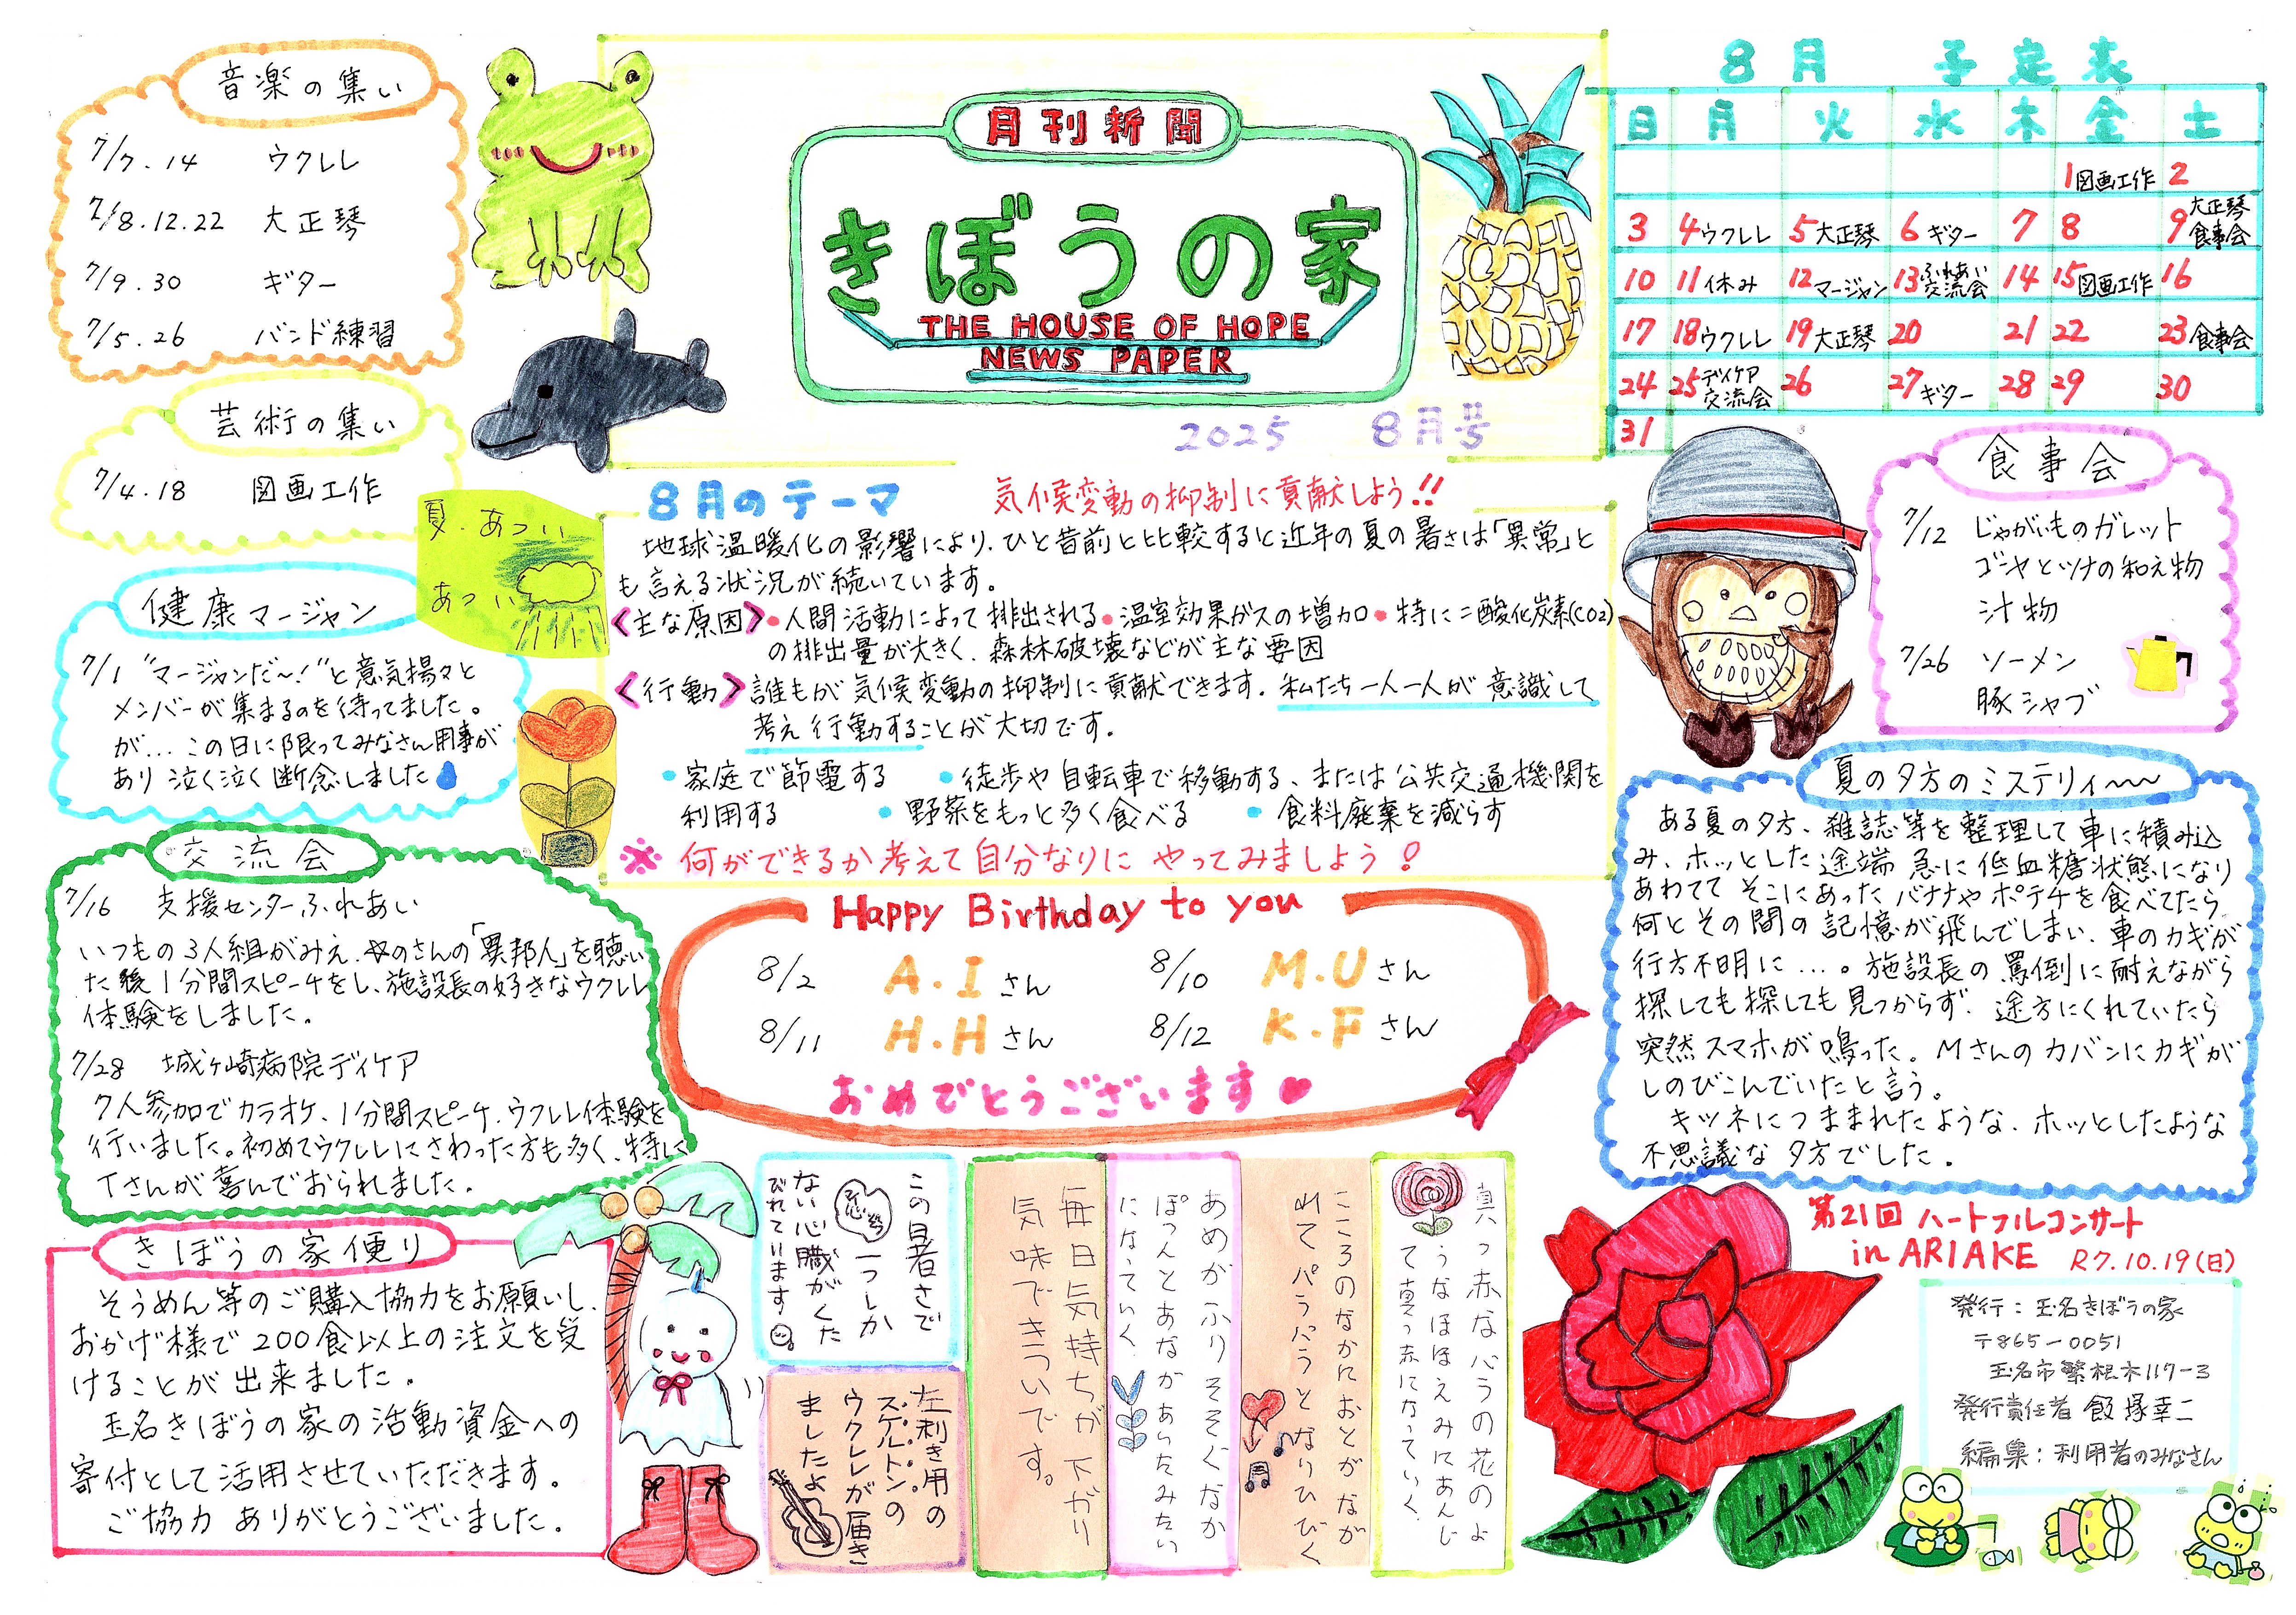 月刊新聞
きぼうの家
THE HOUSE OF HOPE
NEWS PAPER
2025　8月号
音楽の集い
7/7.14　ウクレレ
7/8.12.22　大正琴
7/9.30　ギター
7/5.26　バンド練習
芸術の集い
7/4.18　図画工作
夏.あつい
あつい
健康マージャン
7/1 "マージャンだ～！"と意気揚々と
メンバーが集まるのを待ってました。
が…この日に限ってみなさん用事が
あり 泣く泣く断念しました
交流会
7/16　支援センターふれあい
いつもの3人組がみえ、
のさんの「異邦人」を聴い
た後1分間スピーチをし、施設長の好きなウクレレ
体験をしました。
7/28　城ヶ崎病院デイケア
7人参加でカラオケ、1分間スピーチ、ウクレレ体験を
行いました。初めてウクレレにさわった方も多く、特に
Tさんが喜んでおられました。
きぼうの家便り
そうめん等のご購入協力をお願いし、
おかげ様で200食以上の注文を受
けることが出来ました。
玉名きぼうの家の活動資金への
寄付として活用させていただきます。
ご協力 ありがとうございました。
8月のテーマ　気候変動の抑制に貢献しよう!!
地球温暖化の影響により、ひと昔前と比較すると近年の夏の暑さは「異常」と
も言える状況が続いています。
<主な原因>●人間活動によって排出される●温室効果ガスの増加●特に二酸化炭素(CO2)
の排出量が大きく、森林破壊などが主な要因
<行動>誰もが気候変動の抑制に貢献できます。私たち一人一人が意識して
考え行動することが大切です。
●家庭で節電する　●徒歩や自転車で移動する、または公共交通機関を
利用する　●野菜をもっと多く食べる　●食料廃棄を減らす
※何ができるか考えて自分なりにやってみましょう！
Happy Birthday to you
8/2　A.Iさん　8/10　M.Uさん
8/11　H.Hさん　8/12　K.Fさん
おめでとうございます♥
真っ赤な心うの花のよ
うなほほえみにあんじ
て真っ赤になっていく、
こころのなかにおとがなが
れてパラパラとなりひびく
あめがふりそそぐなか
ぽつんとあなががあいたみたい
になっていく、
毎日気持ちが下がり
気味できついです。
この暑さで
一つしか
ない心臓がくた
びれています
左利き用の
スケルトンの
ウクレレが届き
ましたよ
8月　予定表
日　月　火　水　木　金　土
1図画工作　2
3　4ウクレレ　5大正琴　6ギター　7　8　9大正琴 食事会
10　11休み　12マージャン　13ふれあい交流会　14　15図画工作　16
17　18ウクレレ　19大正琴　20　21　22　23食事会
24　25デイケア交流会　26　27ギター　28　29　30
31
食事会
7/12　じゃがいものガレット
ゴーヤとツナの和え物
汁物
7/26　ソーメン
豚シャブ
夏の夕方のミステリィ～～
ある夏の夕方、雑誌等を整理して車に積み込
み、ホッとした途端 急に低血糖状態になり
あわててそこにあったバナナやポテチを食べてたら
何とその間の記憶が飛んでしまい、車のカギが
行方不明に…。施設長の罵倒に耐えながら
探しても探しても見つからず、途方にくれていたら
突然スマホが鳴った。Mさんのカバンにカギが
しのびこんでいたと言う。
キツネにつままれたような、ホッとしたような
不思議な夕方でした。
第21回 ハートフルコンサート
in ARIAKE　R7.10.19(日)
発行：玉名きぼうの家
〒865-0051
玉名市繁根木117-3
発行責任者 飯塚幸二
編集：利用者のみなさん